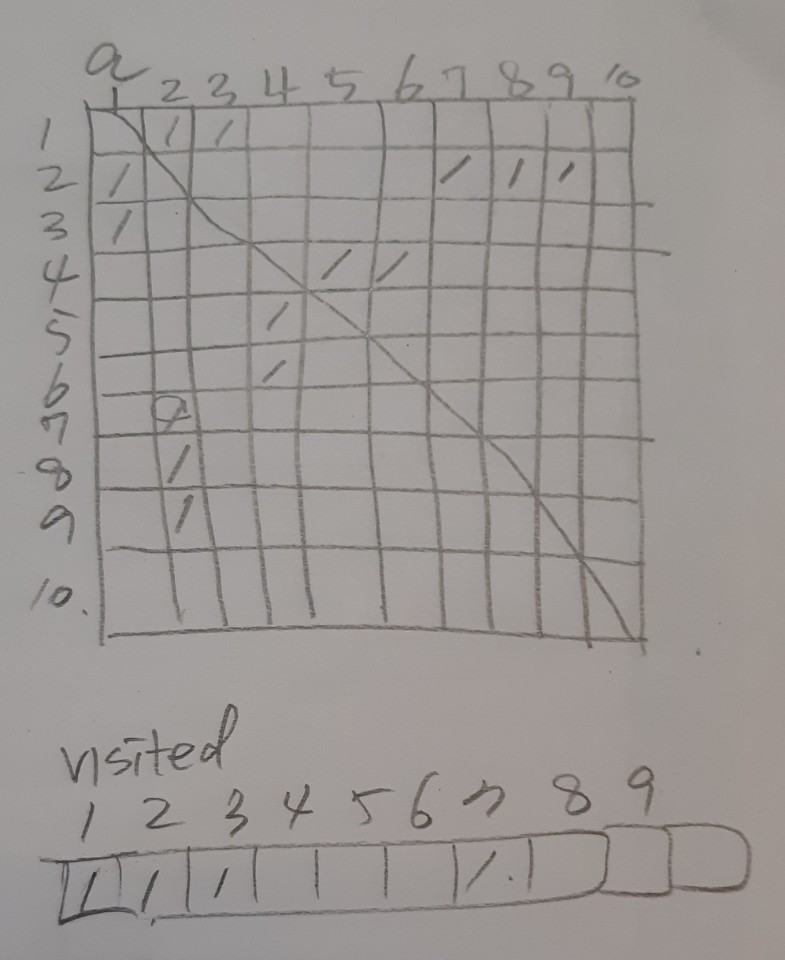 a
1 2 3 4 5 6 7 8 9 10
1 1 1
2 1 1 1 1
3 1
4 1 1
5 1
6 1
7
8 1
9 1
10.
visited
1 2 3 4 5 6 7 8 9
1 1 1 1.